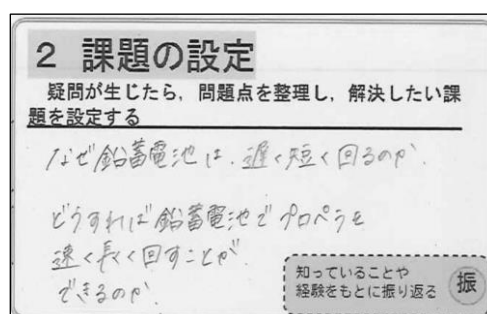 2 課題の設定
疑問が生じたら，問題点を整理し，解決したい課
題を設定する
なぜ鉛蓄電池は、遅く短く回るのか、
どうすれば鉛蓄電池でプロペラを
速く長く回すことが
できるのか、
知っていることや
経験をもとに振り返る
振